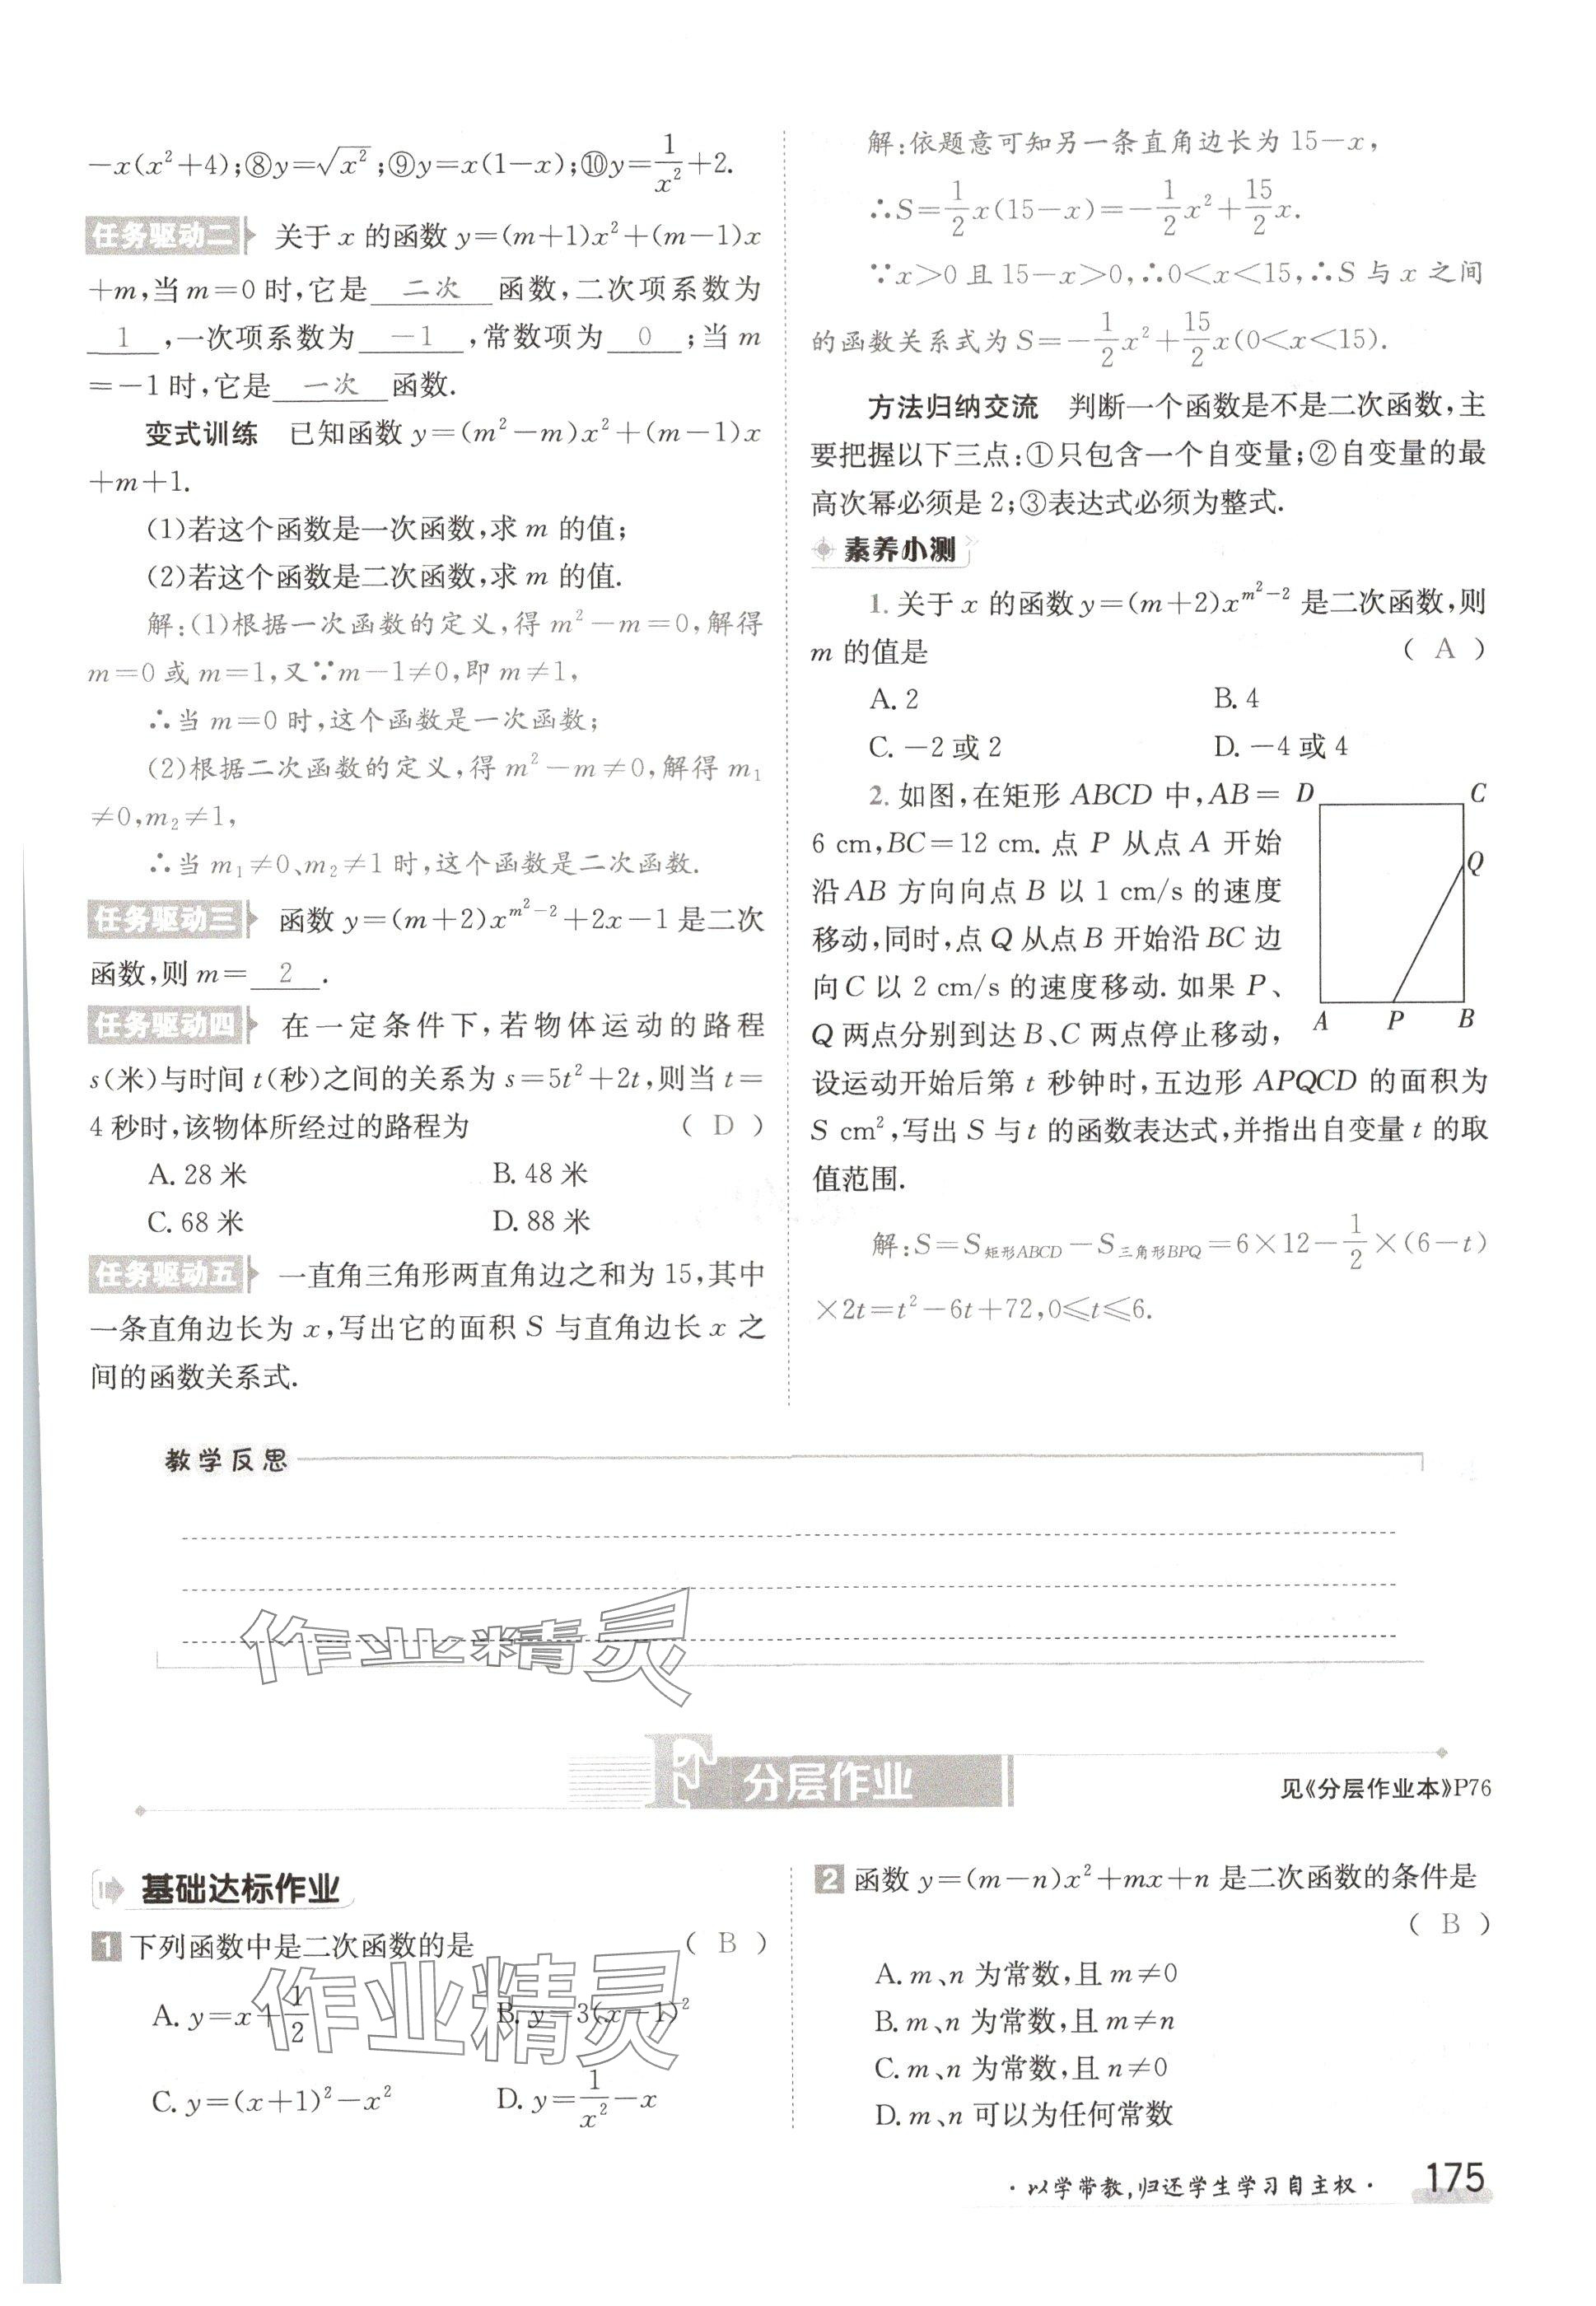 －x(x²＋4);⑧y＝√x²;⑨y＝x(1－x);⑩y＝1/x²＋2.
任务驱动二 关于 x 的函数 y＝(m＋1)x²＋(m－1)x
＋m,当 m＝0 时,它是 二次 函数,二次项系数为
1 ,一次项系数为 －1 ,常数项为 0 ;当 m
＝－1 时,它是 一次 函数.
变式训练 已知函数 y＝(m²－m)x²＋(m－1)x
＋m＋1.
(1)若这个函数是一次函数,求 m 的值;
(2)若这个函数是二次函数,求 m 的值.
解:(1)根据一次函数的定义,得 m²－m＝0,解得
m＝0 或 m＝1,又∵m－1≠0,即 m≠1,
∴当 m＝0 时,这个函数是一次函数;
(2)根据二次函数的定义,得 m²－m≠0,解得 m₁
≠0,m₂≠1,
∴当 m₁≠0、m₂≠1 时,这个函数是二次函数.
任务驱动三 函数 y＝(m＋2)x^(m²－2)＋2x－1 是二次
函数,则 m＝ 2 .
任务驱动四 在一定条件下,若物体运动的路程
s(米)与时间 t(秒)之间的关系为 s＝5t²＋2t,则当 t＝
4 秒时,该物体所经过的路程为 ( D )
A. 28 米 B. 48 米
C. 68 米 D. 88 米
任务驱动五 一直角三角形两直角边之和为 15,其中
一条直角边长为 x,写出它的面积 S 与直角边长 x 之
间的函数关系式.
解:依题意可知另一条直角边长为 15－x,
∴S＝1/2x(15－x)＝－1/2x²＋15/2x.
∵x＞0 且 15－x＞0,∴0＜x＜15,∴S 与 x 之间
的函数关系式为 S＝－1/2x²＋15/2x(0＜x＜15).
方法归纳交流 判断一个函数是不是二次函数,主
要把握以下三点:①只包含一个自变量;②自变量的最
高次幂必须是 2;③表达式必须为整式.
素养小测
1. 关于 x 的函数 y＝(m＋2)x^(m²－2) 是二次函数,则
m 的值是 ( A )
A. 2 B. 4
C. －2 或 2 D. －4 或 4
2. 如图,在矩形 ABCD 中,AB＝
6 cm,BC＝12 cm. 点 P 从点 A 开始
沿 AB 方向向点 B 以 1 cm/s 的速度
移动,同时,点 Q 从点 B 开始沿 BC 边
向 C 以 2 cm/s 的速度移动. 如果 P、
Q 两点分别到达 B、C 两点停止移动,
设运动开始后第 t 秒钟时,五边形 APQCD 的面积为
S cm²,写出 S 与 t 的函数表达式,并指出自变量 t 的取
值范围.
D C
Q
A P B
解:S＝S矩形ABCD－S三角形BPQ＝6×12－1/2×(6－t)
×2t＝t²－6t＋72,0≤t≤6.
教学反思
作业精灵
F 分层作业
见《分层作业本》P76
基础达标作业
1 下列函数中是二次函数的是 ( B )
A. y＝x＋1/2 B. y＝3(x－1)²
C. y＝(x＋1)²－x² D. y＝1/x²－x
作业精灵
2 函数 y＝(m－n)x²＋mx＋n 是二次函数的条件是
( B )
A. m、n 为常数,且 m≠0
B. m、n 为常数,且 m≠n
C. m、n 为常数,且 n≠0
D. m、n 可以为任何常数
·以学带教,归还学生学习自主权· 175